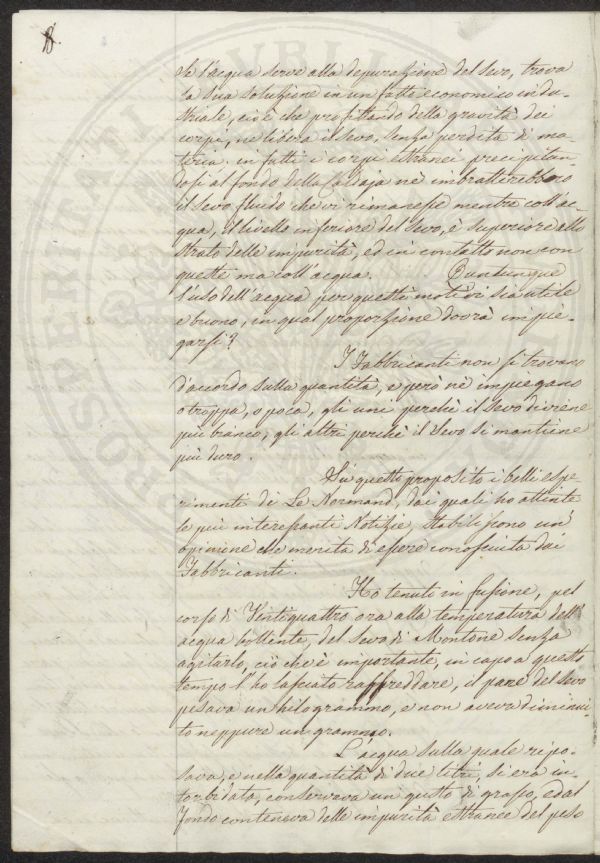 8.
Se l'acqua serve alla depurazione del sevo, trova
la sua soluzione in un fatto economico indu-
striale, cioè che profittando della gravità dei
corpi, ne libera il sevo, senza perdita di ma-
teria. in fatti i corpi estranei precipitan
dosi al fondo della Caldaja nè imbratterebbono
il sevo fluido che vi rimanesse mentre coll'ac-
qua, il livello inferiore del sevo, è superiore allo
strato delle impurità, ed in contatto non con
queste ma coll'acqua. Quntunque
l'uso dell'acqua per questi motivi sia utile
e buono, in qual proporzione dovrà impie-
garsi?
I Fabbricanti non si trovano
d'accordo sulla quantità, e però nè impiegano
o troppa, o poca, gli uni perchè il sevo diviene
più bianco, gli altri perchè il sevo si mantiene
più duro.
Su questo proposito i belli espe-
rimenti di Le Normand, dai quali ho attinte
le più interessanti Notizie, stabiliscono un'
opinione che merita di essere conosciuta dai
Fabbricanti.
Ho tenuti in fusione, pel
corso di Ventiquattro ora alla temperatura dell'
acqua bollente, del sevo di Montone senza
agitarlo, ciò che è importante, in capo a questo
tempo l'ho lasciato raffreddare, il pane del sevo
pesava un kilogrammo, e non aveva diminui-
to neppure un grammo.
L'acqua sulla quale ripo-
sava, e nella quantità di due litri, si era in-
torbidata, conservava un gusto di grasso, ed al
fondo conteneva delle impurità estranee del peso